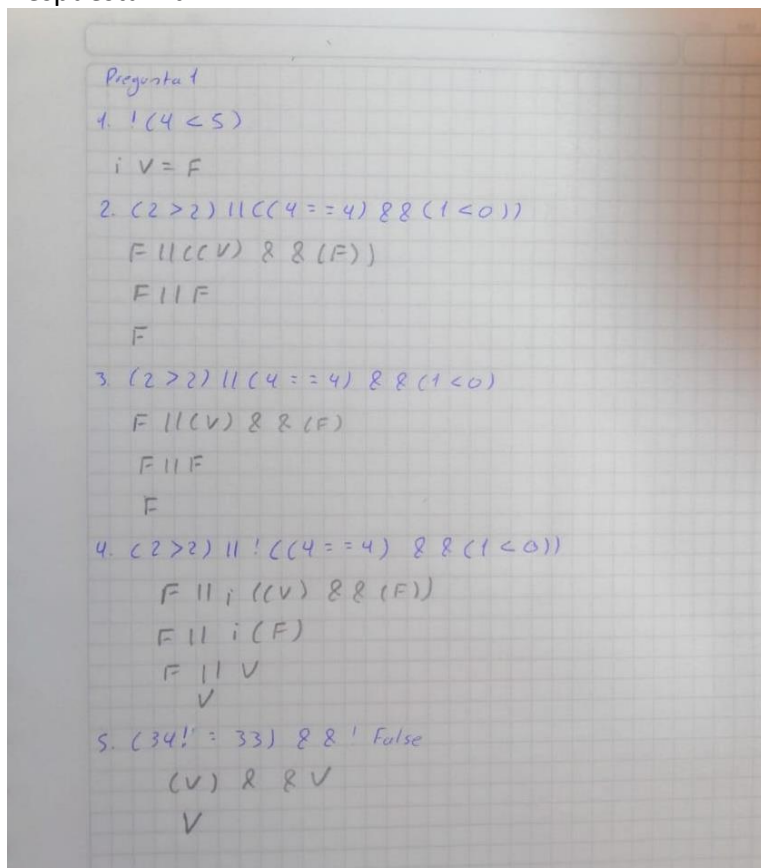 Pregunta 1
1. !(4 < 5)
¡ V = F
2. (2 > 2) || ((4 = = 4) && (1 < 0))
F || ((V) && (F))
F || F
F
3. (2 > 2) || (4 = = 4) && (1 < 0)
F || (V) && (F)
F || F
F
4. (2 > 2) || ! ((4 = = 4) && (1 < 0))
F || ¡ ((V) && (F))
F || ¡ (F)
F || V
V
5. (34! = 33) && ! False
(V) && V
V